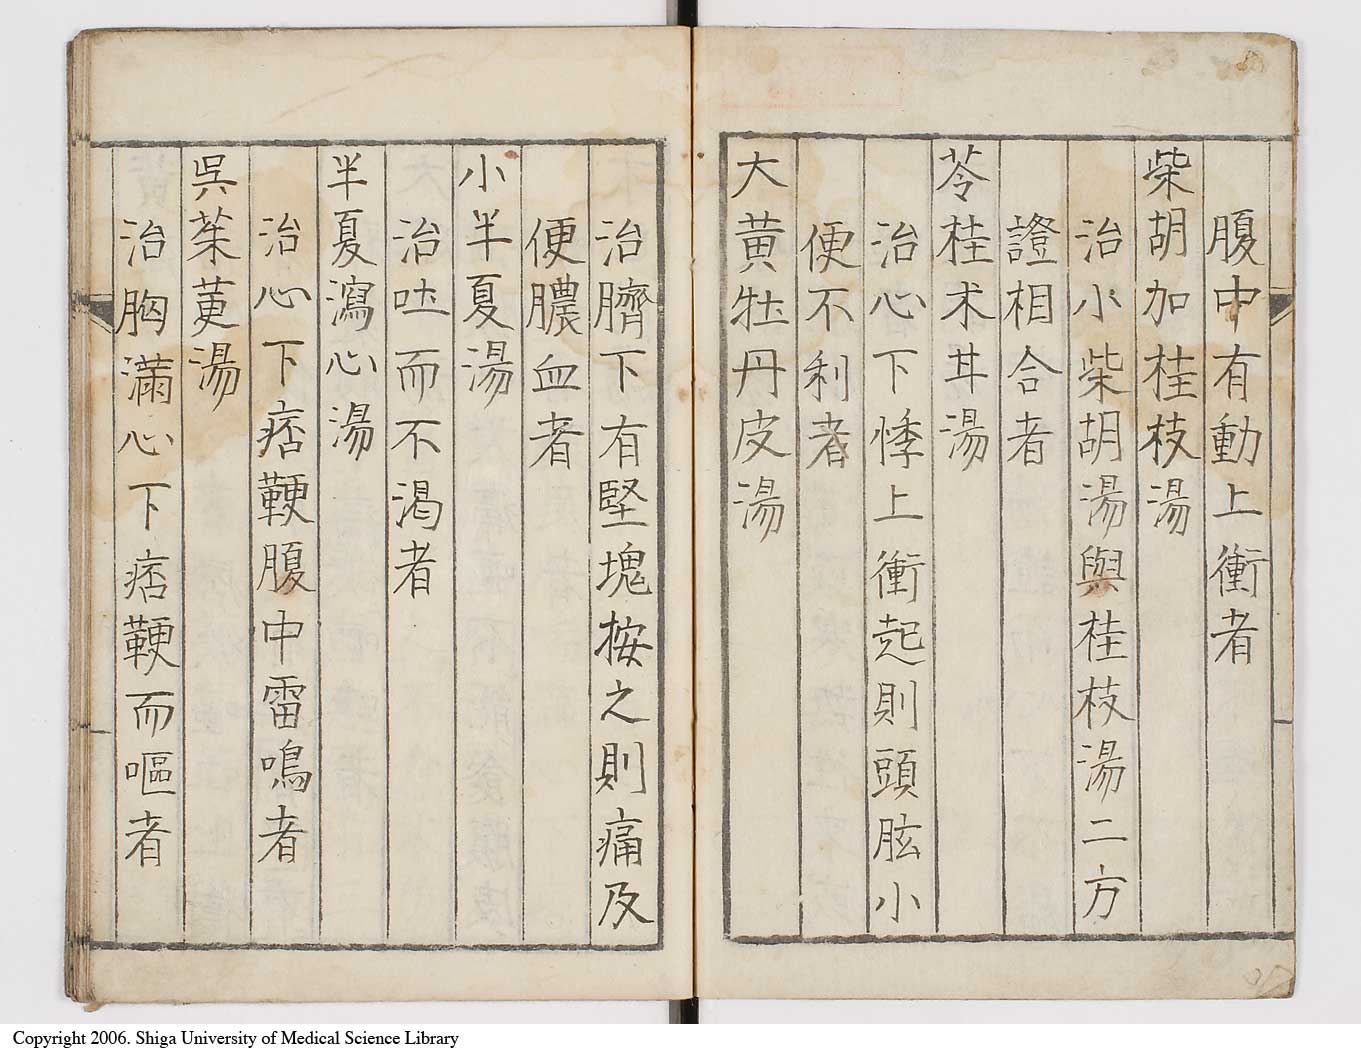 腹中有動上衝者
柴胡加桂枝湯
治小柴胡湯與桂枝湯二方
證相合者
苓桂朮甘湯
治心下悸上衝起則頭眩小
便不利者
大黄牡丹皮湯
治臍下有堅塊按之則痛及
便膿血者
小半夏湯
治吐而不渇者
半夏瀉心湯
治心下痞鞕腹中雷鳴者
呉茱萸湯
治胸満心下痞鞕而嘔者
Copyright 2006. Shiga University of Medical Science Library